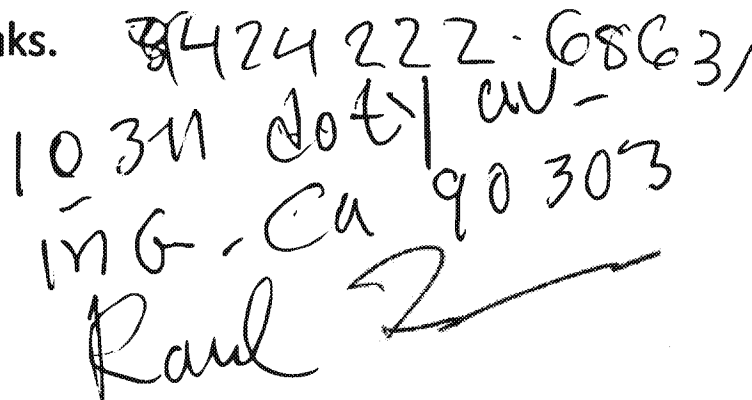 nks. 424 222-6863
doty av-
ing-Ca 90303
Raul